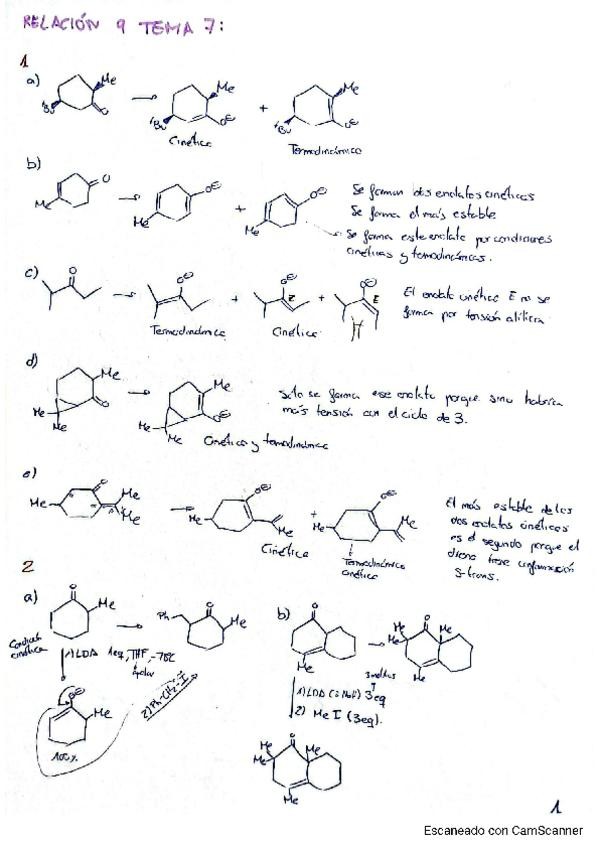 RELACIÓN 9 TEMA 7:
1
a)
Me
tBu
O
Me
tBu
O⊖
Cinético
+
Me
tBu
O⊖
Termodinámico
b)
Me
O
Me
O⊖
+
Me
O⊖
Se forman los enolatos cinéticos
Se forma el más estable
Se forma este enolato por condiciones
cinéticas y termodinámicas.
c)
O
O⊖
Termodinámico
+
O⊖
Z
Cinético
+
O⊖
E
H
El enolato cinético E no se
forma por tensión alílica
d)
Me
O
Me
Me
Me
O⊖
Me
Me
Cinético y termodinámico
Solo se forma ese enolato porque sino habría
más tensión con el ciclo de 3.
e)
Me
O
Me
Me
O⊖
Me
Me
Cinético
+
O⊖
Me
Me
Termodinámico
cinético
El más estable de los
dos enolatos cinéticos
es el segundo porque el
dieno tiene conformación
s-trans.
2
a)
O
Me
Ph
O
Me
cinética
1) LDA 1eq, THF, -78ºC
2) Ph-CH2-I
O⊖
Me
100%
b)
O
Me
Me
Me
O
Me
Me
1) LDA (ó NaH) 3eq
2) MeI (3eq).
Me
Me
O
Me
Me
1
Escaneado con CamScanner